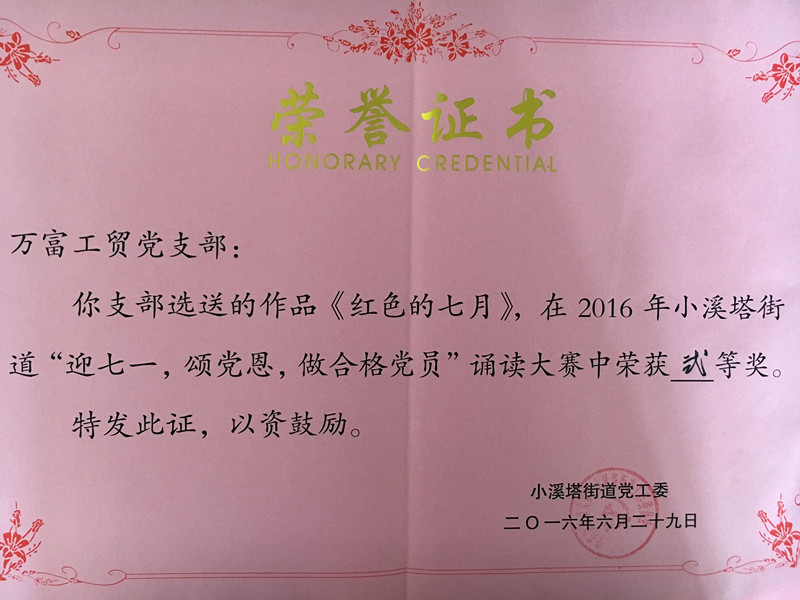 荣誉证书
HONORARY CREDENTIAL
万富工贸党支部：
你支部选送的作品《红色的七月》，在 2016 年小溪塔街
道“迎七一，颂党恩，做合格党员”诵读大赛中荣获 贰 等奖。
特发此证，以资鼓励。
小溪塔街道党工委
二〇一六年六月二十九日